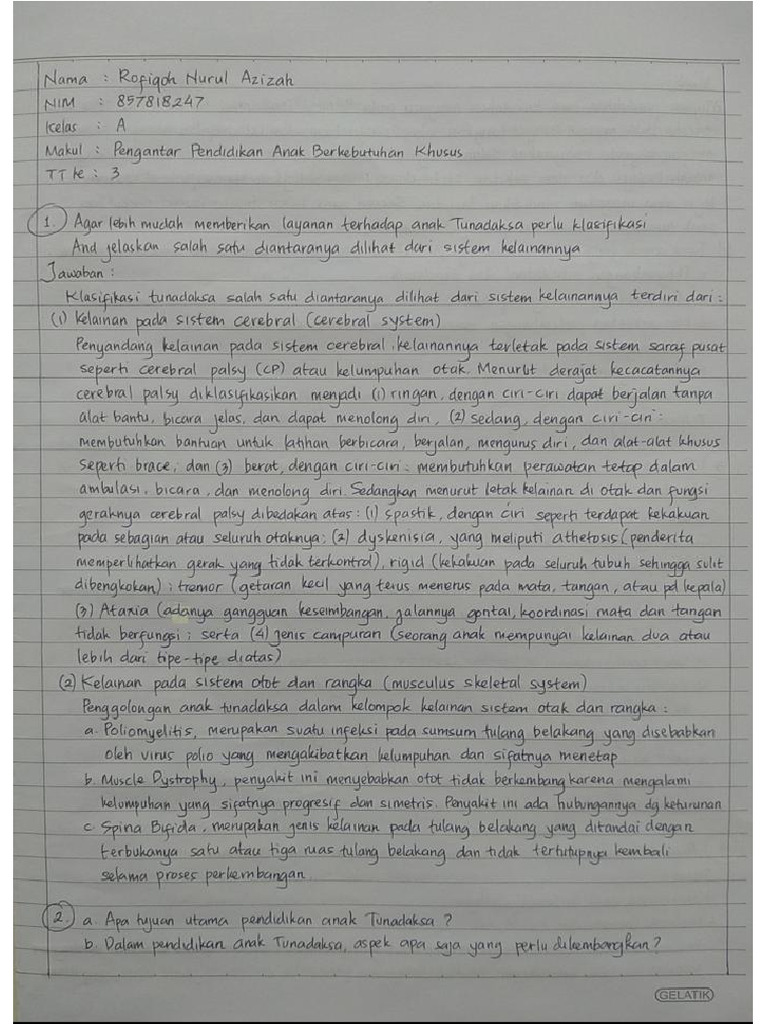 Nama : Rofiqoh Nurul Azizah
NIM : 857818247
Kelas : A
Makul : Pengantar Pendidikan Anak Berkebutuhan Khusus
TT ke : 3
1. Agar lebih mudah memberikan layanan terhadap anak Tunadaksa perlu klasifikasi
And jelaskan salah satu diantaranya dilihat dari sistem kelainannya
Jawaban :
Klasifikasi tunadaksa salah satu diantaranya dilihat dari sistem kelainannya terdiri dari :
(1) Kelainan pada sistem cerebral (cerebral system)
Penyandang kelainan pada sistem cerebral, kelainannya terletak pada sistem saraf pusat
seperti cerebral palsy (CP) atau kelumpuhan otak. Menurut derajat kecacatannya
cerebral palsy diklasifikasikan menjadi (1) ringan, dengan ciri-ciri dapat berjalan tanpa
alat bantu, bicara jelas, dan dapat menolong diri, (2) sedang, dengan ciri-ciri :
membutuhkan bantuan untuk latihan berbicara, berjalan, mengurus diri, dan alat-alat khusus
seperti brace; dan (3) berat, dengan ciri-ciri : membutuhkan perawatan tetap dalam
ambulasi, bicara, dan menolong diri. Sedangkan menurut letak kelainan di otak dan fungsi
geraknya cerebral palsy dibedakan atas : (1) spastik, dengan ciri seperti terdapat kekakuan
pada sebagian atau seluruh ototnya; (2) dyskenisia, yang meliputi athetosis (penderita
memperlihatkan gerak yang tidak terkontrol), rigid (kekakuan pada seluruh tubuh sehingga sulit
dibengkokan) ; tremor (getaran kecil yang terus menerus pada mata, tangan, atau pd kepala)
(3) Ataxia (adanya gangguan keseimbangan, jalannya gontai, koordinasi mata dan tangan
tidak berfungsi ; serta (4) jenis campuran (seorang anak mempunyai kelainan dua atau
lebih dari tipe-tipe diatas)
(2) Kelainan pada sistem otot dan rangka (musculus skeletal system)
Penggolongan anak tunadaksa dalam kelompok kelainan sistem otak dan rangka :
a. Poliomyelitis, merupakan suatu infeksi pada sumsum tulang belakang yang disebabkan
oleh virus polio yang mengakibatkan kelumpuhan dan sifatnya menetap
b. Muscle Dystrophy, penyakit ini menyebabkan otot tidak berkembang karena mengalami
kelumpuhan yang sifatnya progresif dan simetris. Penyakit ini ada hubungannya dg keturunan
c. Spina Bifida, merupakan jenis kelainan pada tulang belakang yang ditandai dengan
terbukanya satu atau tiga ruas tulang belakang dan tidak tertutupnya kembali
selama proses perkembangan.
2. a. Apa tujuan utama pendidikan anak Tunadaksa ?
b. Dalam pendidikan anak Tunadaksa, aspek apa saja yang perlu dikembangkan ?
GELATIK